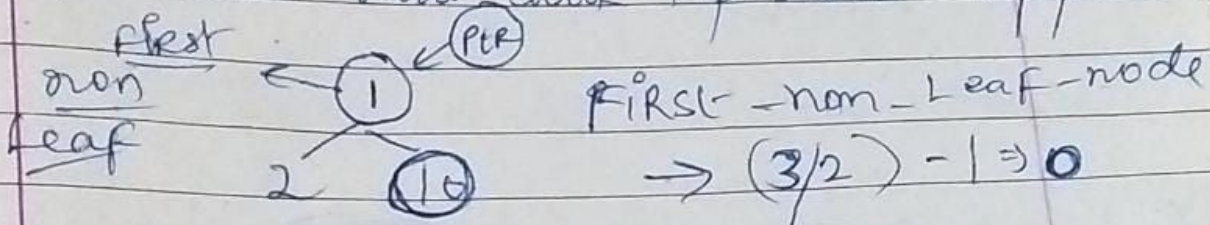 First
non
Leaf
PtR
1
2
10
FiRSt-non-Leaf-node
→ (3/2) - 1 ⇒ 0